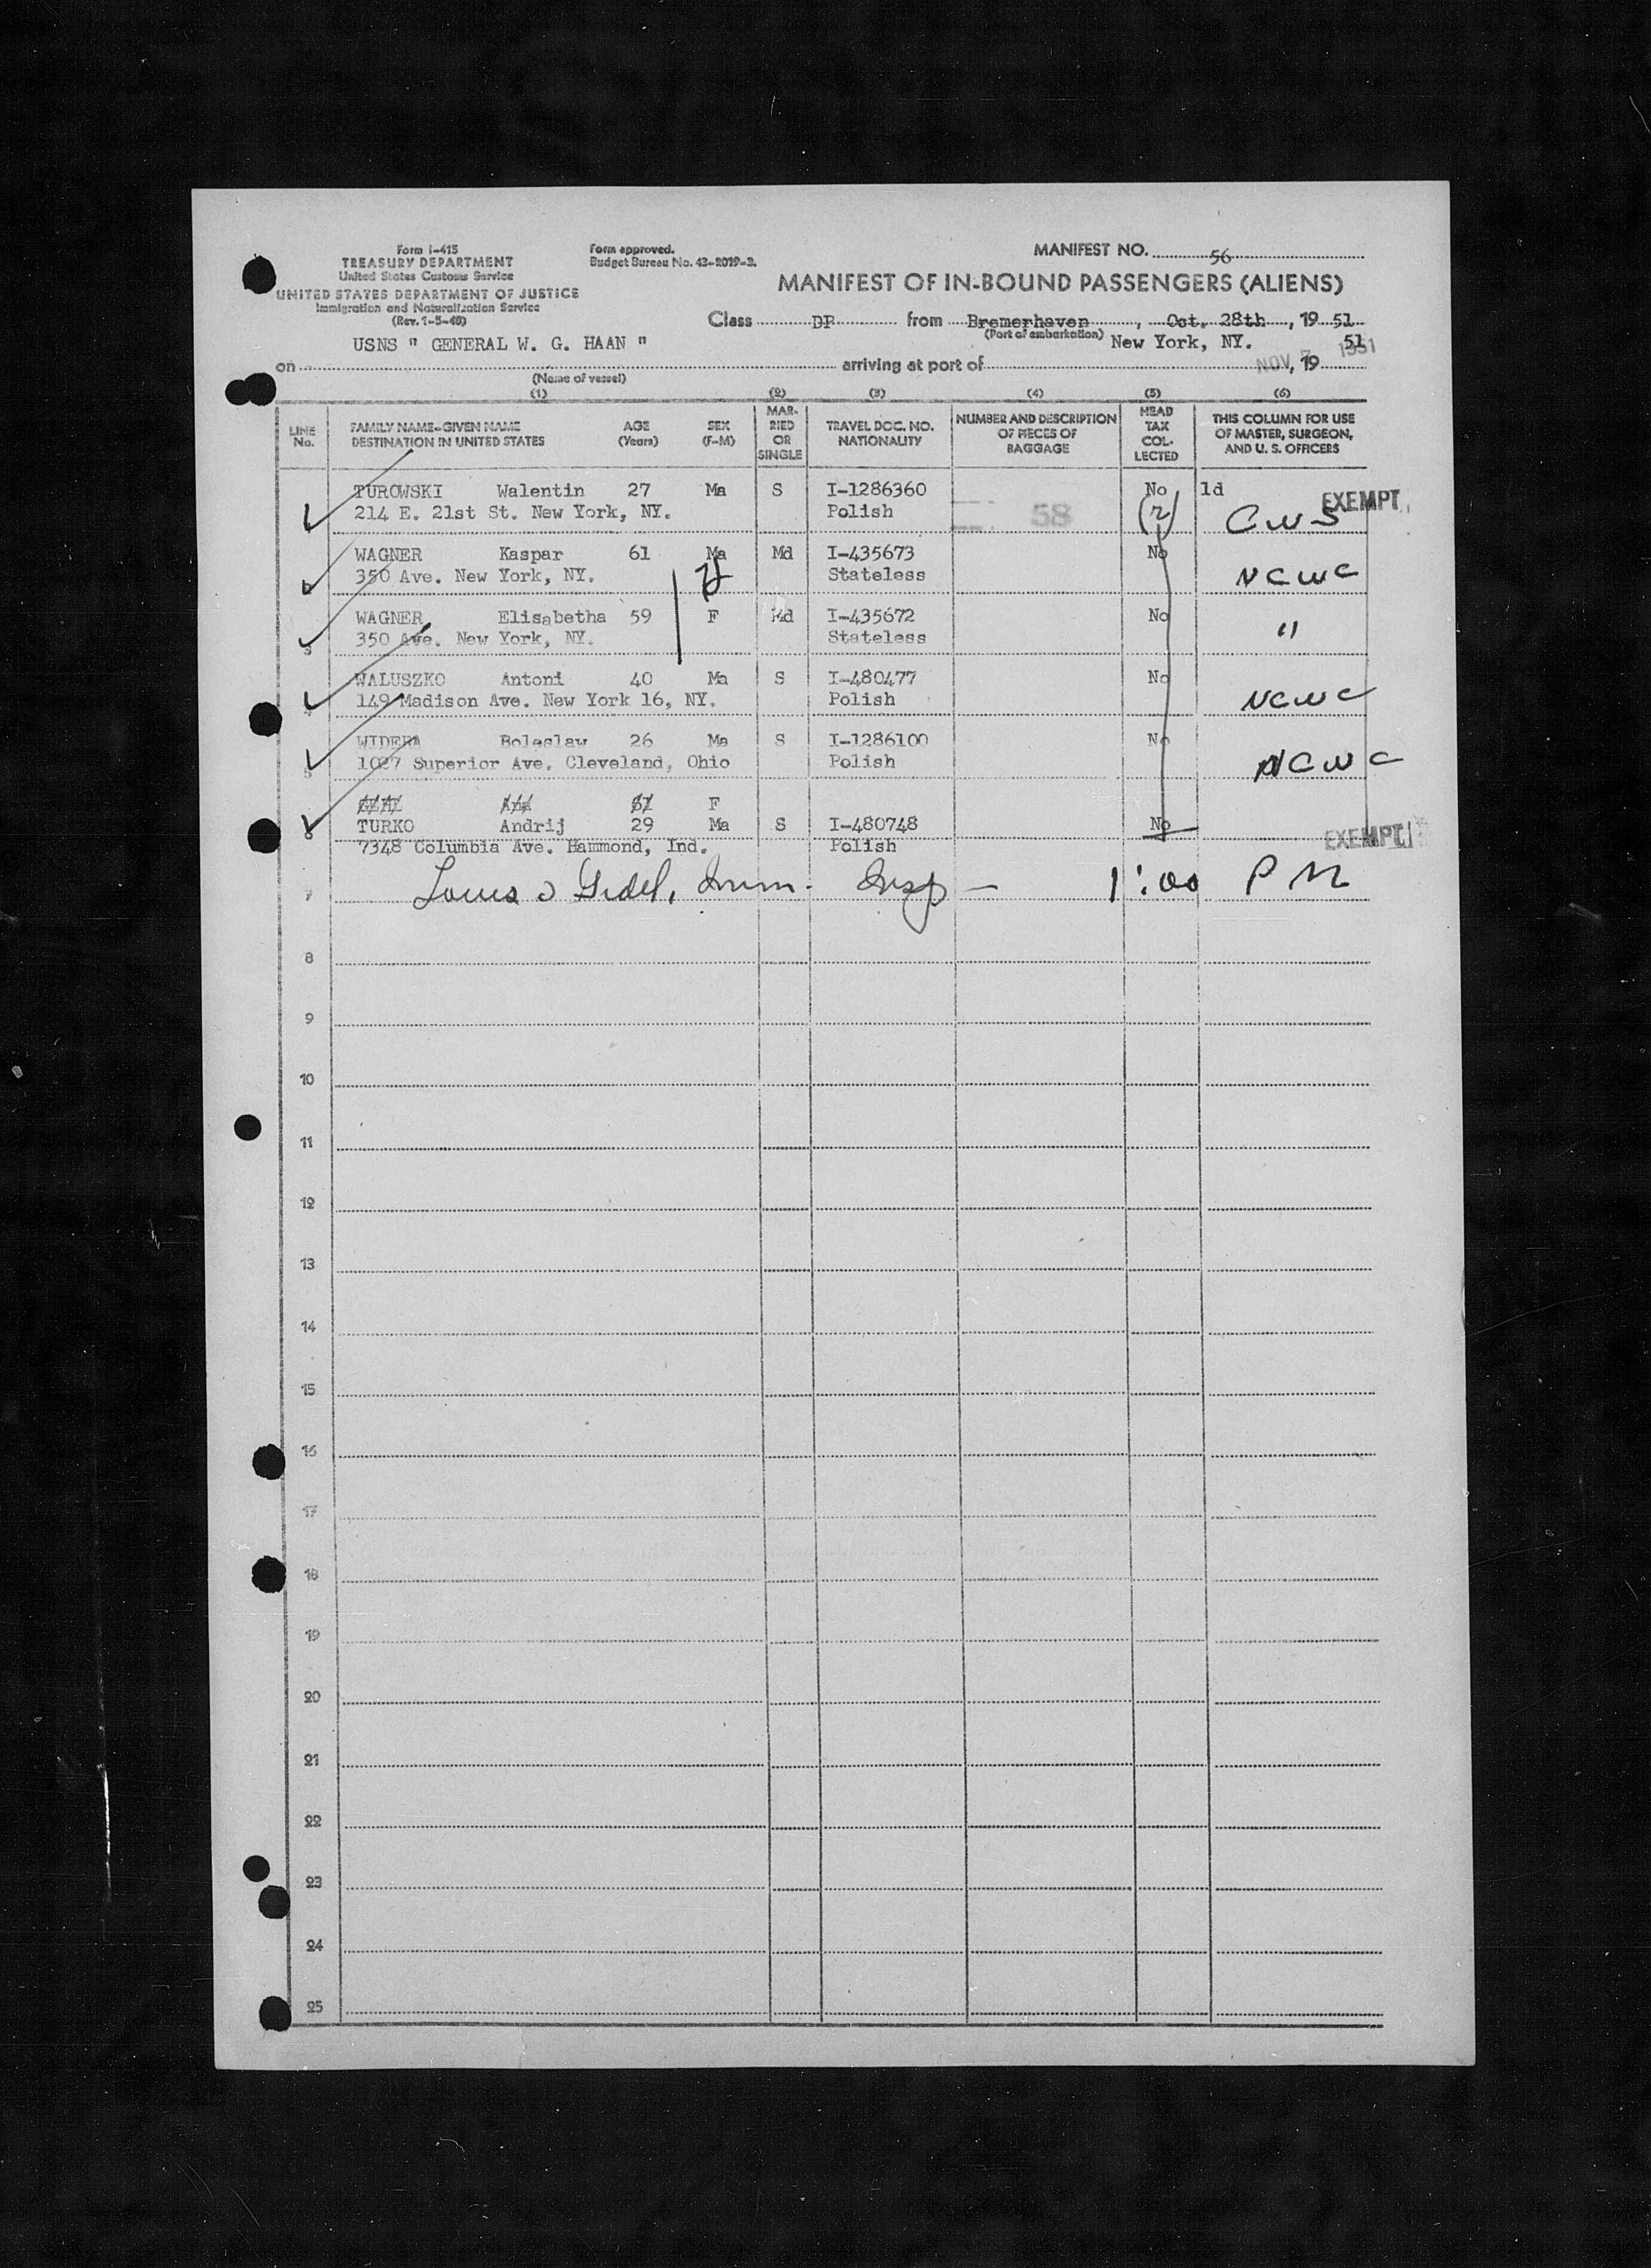 Form I-415
TREASURY DEPARTMENT
United States Customs Service
UNITED STATES DEPARTMENT OF JUSTICE
Immigration and Naturalization Service
(Rev. 1-5-48)
Form approved.
Budget Bureau No. 43-R019-3.
MANIFEST NO. 56
MANIFEST OF IN-BOUND PASSENGERS (ALIENS)
Class DP from Bremerhaven, Oct. 28th, 19 51
(Port of embarkation)
USNS " GENERAL W. G. HAAN " New York, NY. 51
on arriving at port of NOV 7 1951, 19
(Name of vessel)
(1) (2) (3) (4) (5) (6)
LINE No. FAMILY NAME-GIVEN NAME DESTINATION IN UNITED STATES AGE (Years) SEX (F-M) MARRIED OR SINGLE TRAVEL DOC. NO. NATIONALITY NUMBER AND DESCRIPTION OF PIECES OF BAGGAGE HEAD TAX COLLECTED THIS COLUMN FOR USE OF MASTER, SURGEON, AND U. S. OFFICERS
TUROWSKI Walentin 27 Ma S I-1286360 No 1d EXEMPT
214 E. 21st St. New York, NY. Polish 58 (2) CWS
WAGNER Kaspar 61 Ma Md I-435673 No
350 Ave. New York, NY. Stateless NCWC
WAGNER Elisabetha 59 F Md I-435672 No
3 350 Ave. New York, NY. Stateless "
WALUSZKO Antoni 40 Ma S I-480477 No
4 149 Madison Ave. New York 16, NY. Polish NCWC
WIDERA Boleslaw 26 Ma S I-1286100 No
5 1027 Superior Ave. Cleveland, Ohio Polish NCWC
F
6 TURKO Andrij 29 Ma S I-480748 No EXEMPT
7348 Columbia Ave. Hammond, Ind. Polish
7 Imm. Insp — 1:00 PM
8
9
10
11
12
13
14
15
16
17
18
19
20
21
22
23
24
25